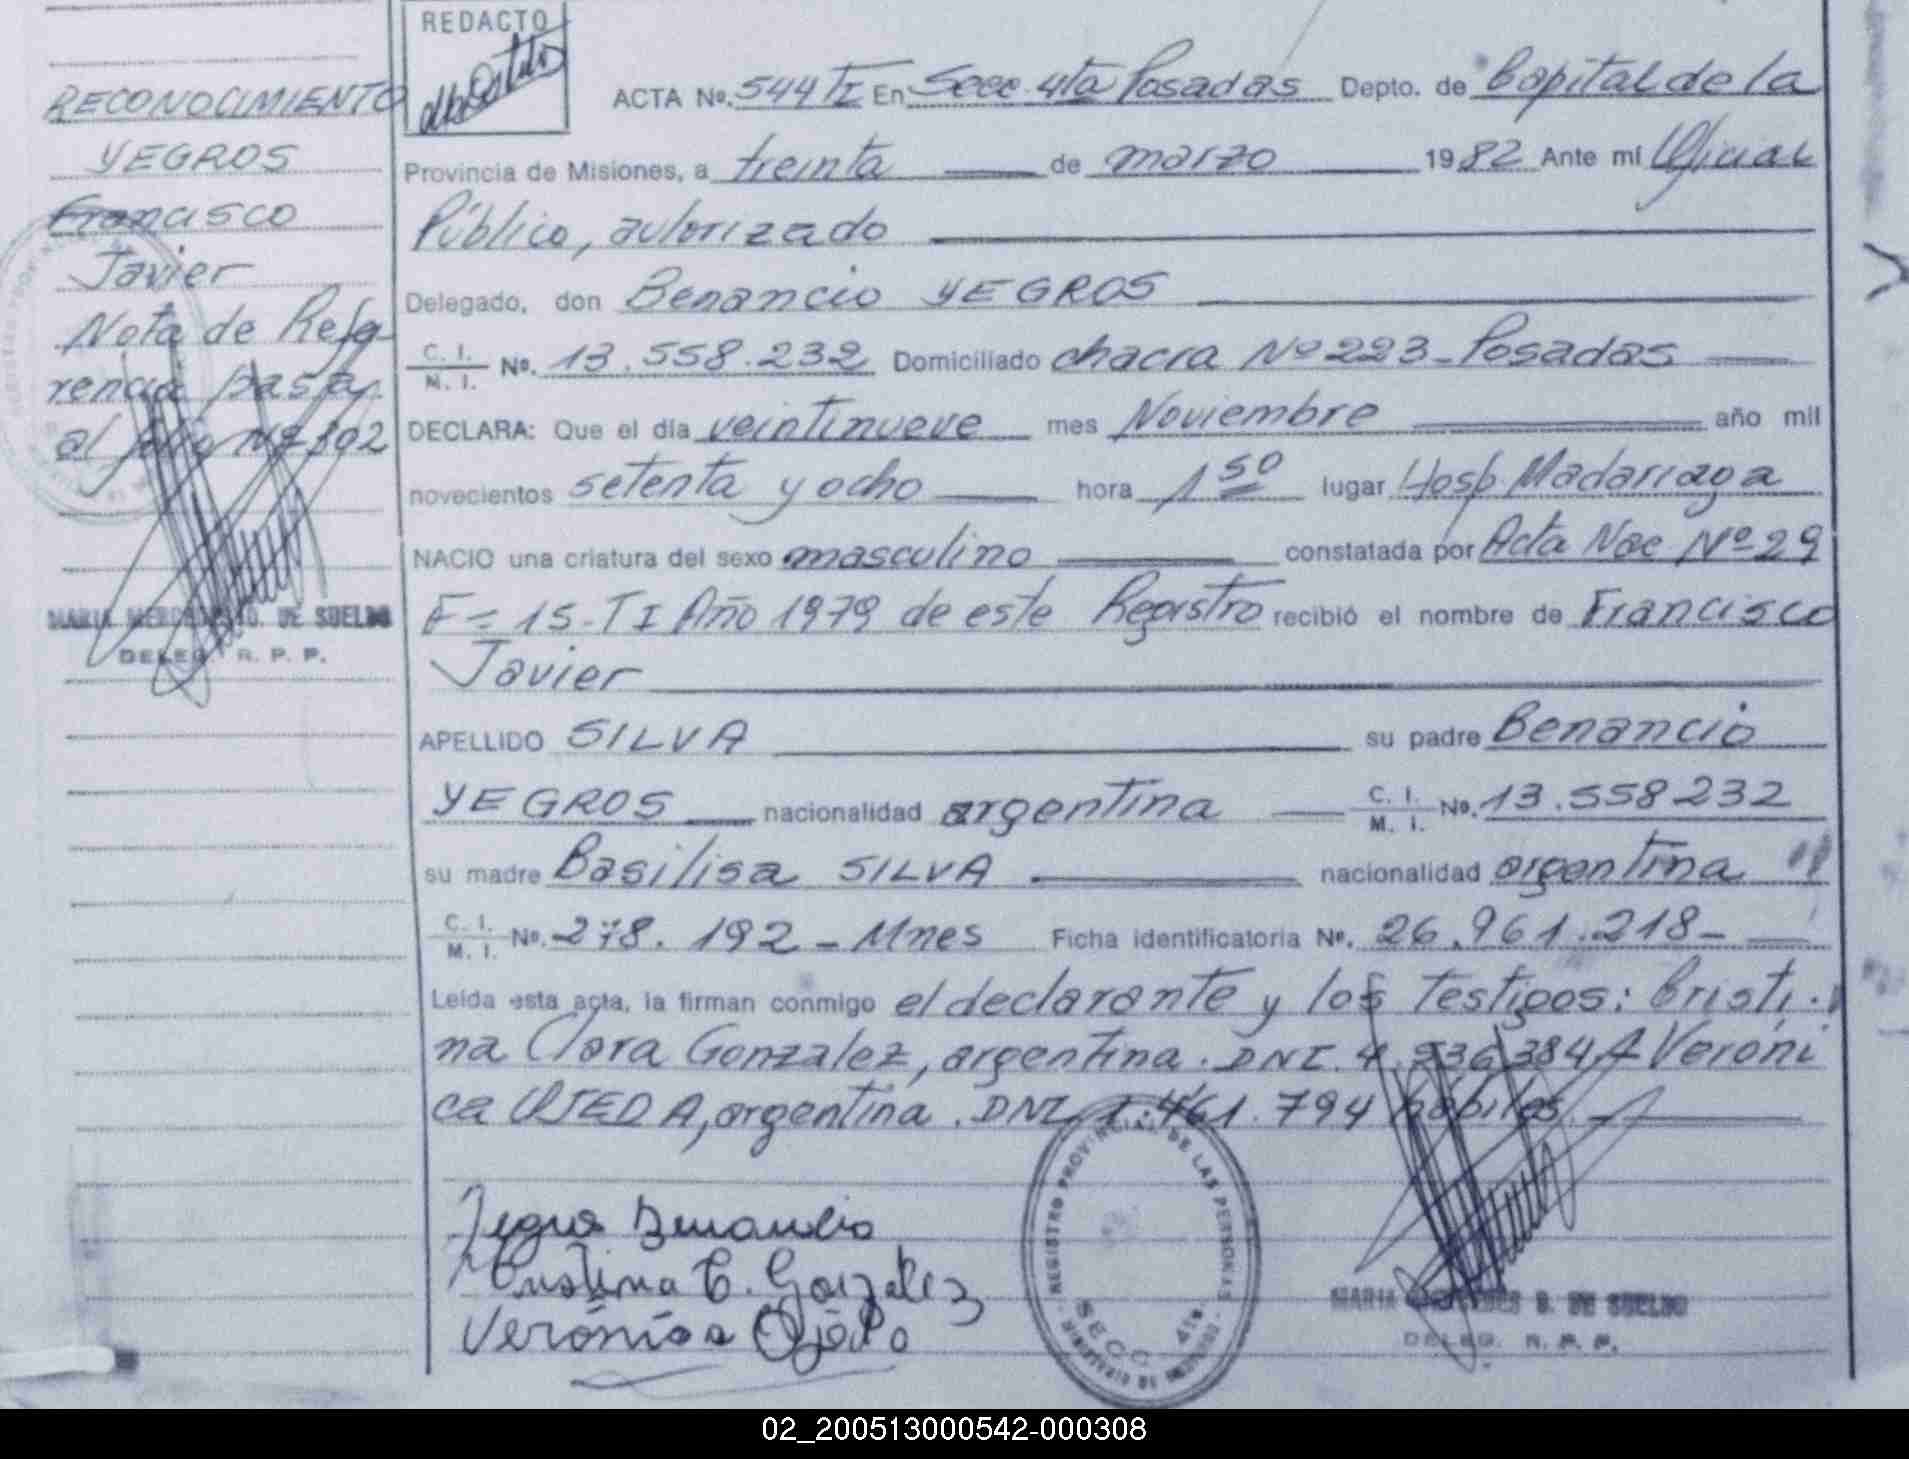 REDACTO
RECONOCIMIENTO
YEGROS
Francisco
Javier
Nota de Refe
rencia pasa
al folio Nº 302
MARIA MERCEDES D. DE SUELDO
DELEG. R. P. P.
ACTA Nº. 544 TI En Secc. 4ta Posadas Depto. de Capital de la
Provincia de Misiones, a treinta de marzo 1982 Ante mí Oficial
Público, autorizado
Delegado, don Benancio YEGROS
C. I. / M. I. Nº. 13.558.232 Domiciliado chacra Nº 223-Posadas
DECLARA: Que el día veintinueve mes Noviembre año mil
novecientos setenta y ocho hora 1 50 lugar Hosp. Madariaga
NACIO una criatura del sexo masculino constatada por Acta Nac Nº 29
F= 15-TI Año 1979 de este Registro recibió el nombre de Francisco
Javier
APELLIDO SILVA su padre Benancio
YEGROS nacionalidad argentina C. I. / M. I. Nº. 13.558232
su madre Basilisa SILVA nacionalidad argentina
C. I. / M. I. Nº. 278. 192 - Mnes Ficha identificatoria Nº. 26.961.218-
Leída esta acta, la firman conmigo el declarante y los testigos: Cristi-
na Clara Gonzalez, argentina. DNI. 4.936.384 Veróni
ca OJEDA, argentina. DNI 1.461.794 hábiles.
Yegros Benancio
Cristina C. Gonzalez
Verónica Ojeda
REGISTRO PROVINCIAL DE LAS PERSONAS
SECC. 4ta.
MARIA MERCEDES D. DE SUELDO
DELEG. R. P. P.
02_200513000542-000308